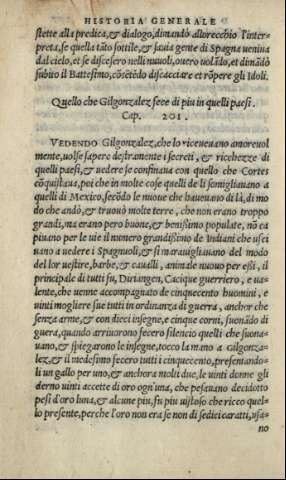 HISTORIA GENERALE
stette alla predica, & dialogo, dimandò allorecchio l'inter-
preta, se quella tãto sottile, & sauia gente di Spagna veniua
dal cielo, et se discesero nelli nuuoli, ouero uolãdo, et dimãdò
subito il Battesimo, cõsẽtẽdo discacciare et rõpere gli Idoli.
Quello che Gilgonzalez fece di piu in quelli paesi.
Cap. 201.
VEDENDO Gilgonzalez, che lo riceueuano amoreuol
mente, uolse sapere destramente i secreti, & ricchezze di
quelli paesi, & uedere se confinaua con quello che Cortes
cõquistaua, poi che in molte cose quelle de li somigliauano a
quelli di Mexico, secõdo le nuoue che haueuano di là, di mo
do che andò, & trouò molte terre, che non erano troppo
grandi, ma erano pero buone, & benissimo populate, nõ ca
piuano per le uie il numero grandissimo de Indiani che usci
uano a uedere i Spagnuoli, & si marauigliauano del modo
del lor uestire, barbe, & caualli, animale nuouo per essi, il
principale di tutti fu, Diriangen, Cacique guerriero, e ua-
lente, che uenne accompagnato de cinquecento huomini, e
uinti mogliere sue tutti in ordinanza di guerra, anchor che
senza arme, & con dieci insegne, e cinque corni, suonãdo di
guera, quando arriuorono fecero silencio quelli che suona-
uano, & spiegarono le insegne, tocco la mano a Gilgonza-
lez, & il medesimo fecero tutti i cinquecento, presentando-
li un gallo per uno, & anchora molti due, le uinti donne gli
derno uinti accette di oro ogn'una, che pesauano decidotto
pesi d'oro luna, & alcune piu, fu piu uistoso che ricco quel-
lo presente, perche l'oro non era se non di sedici caratti, usa-
no